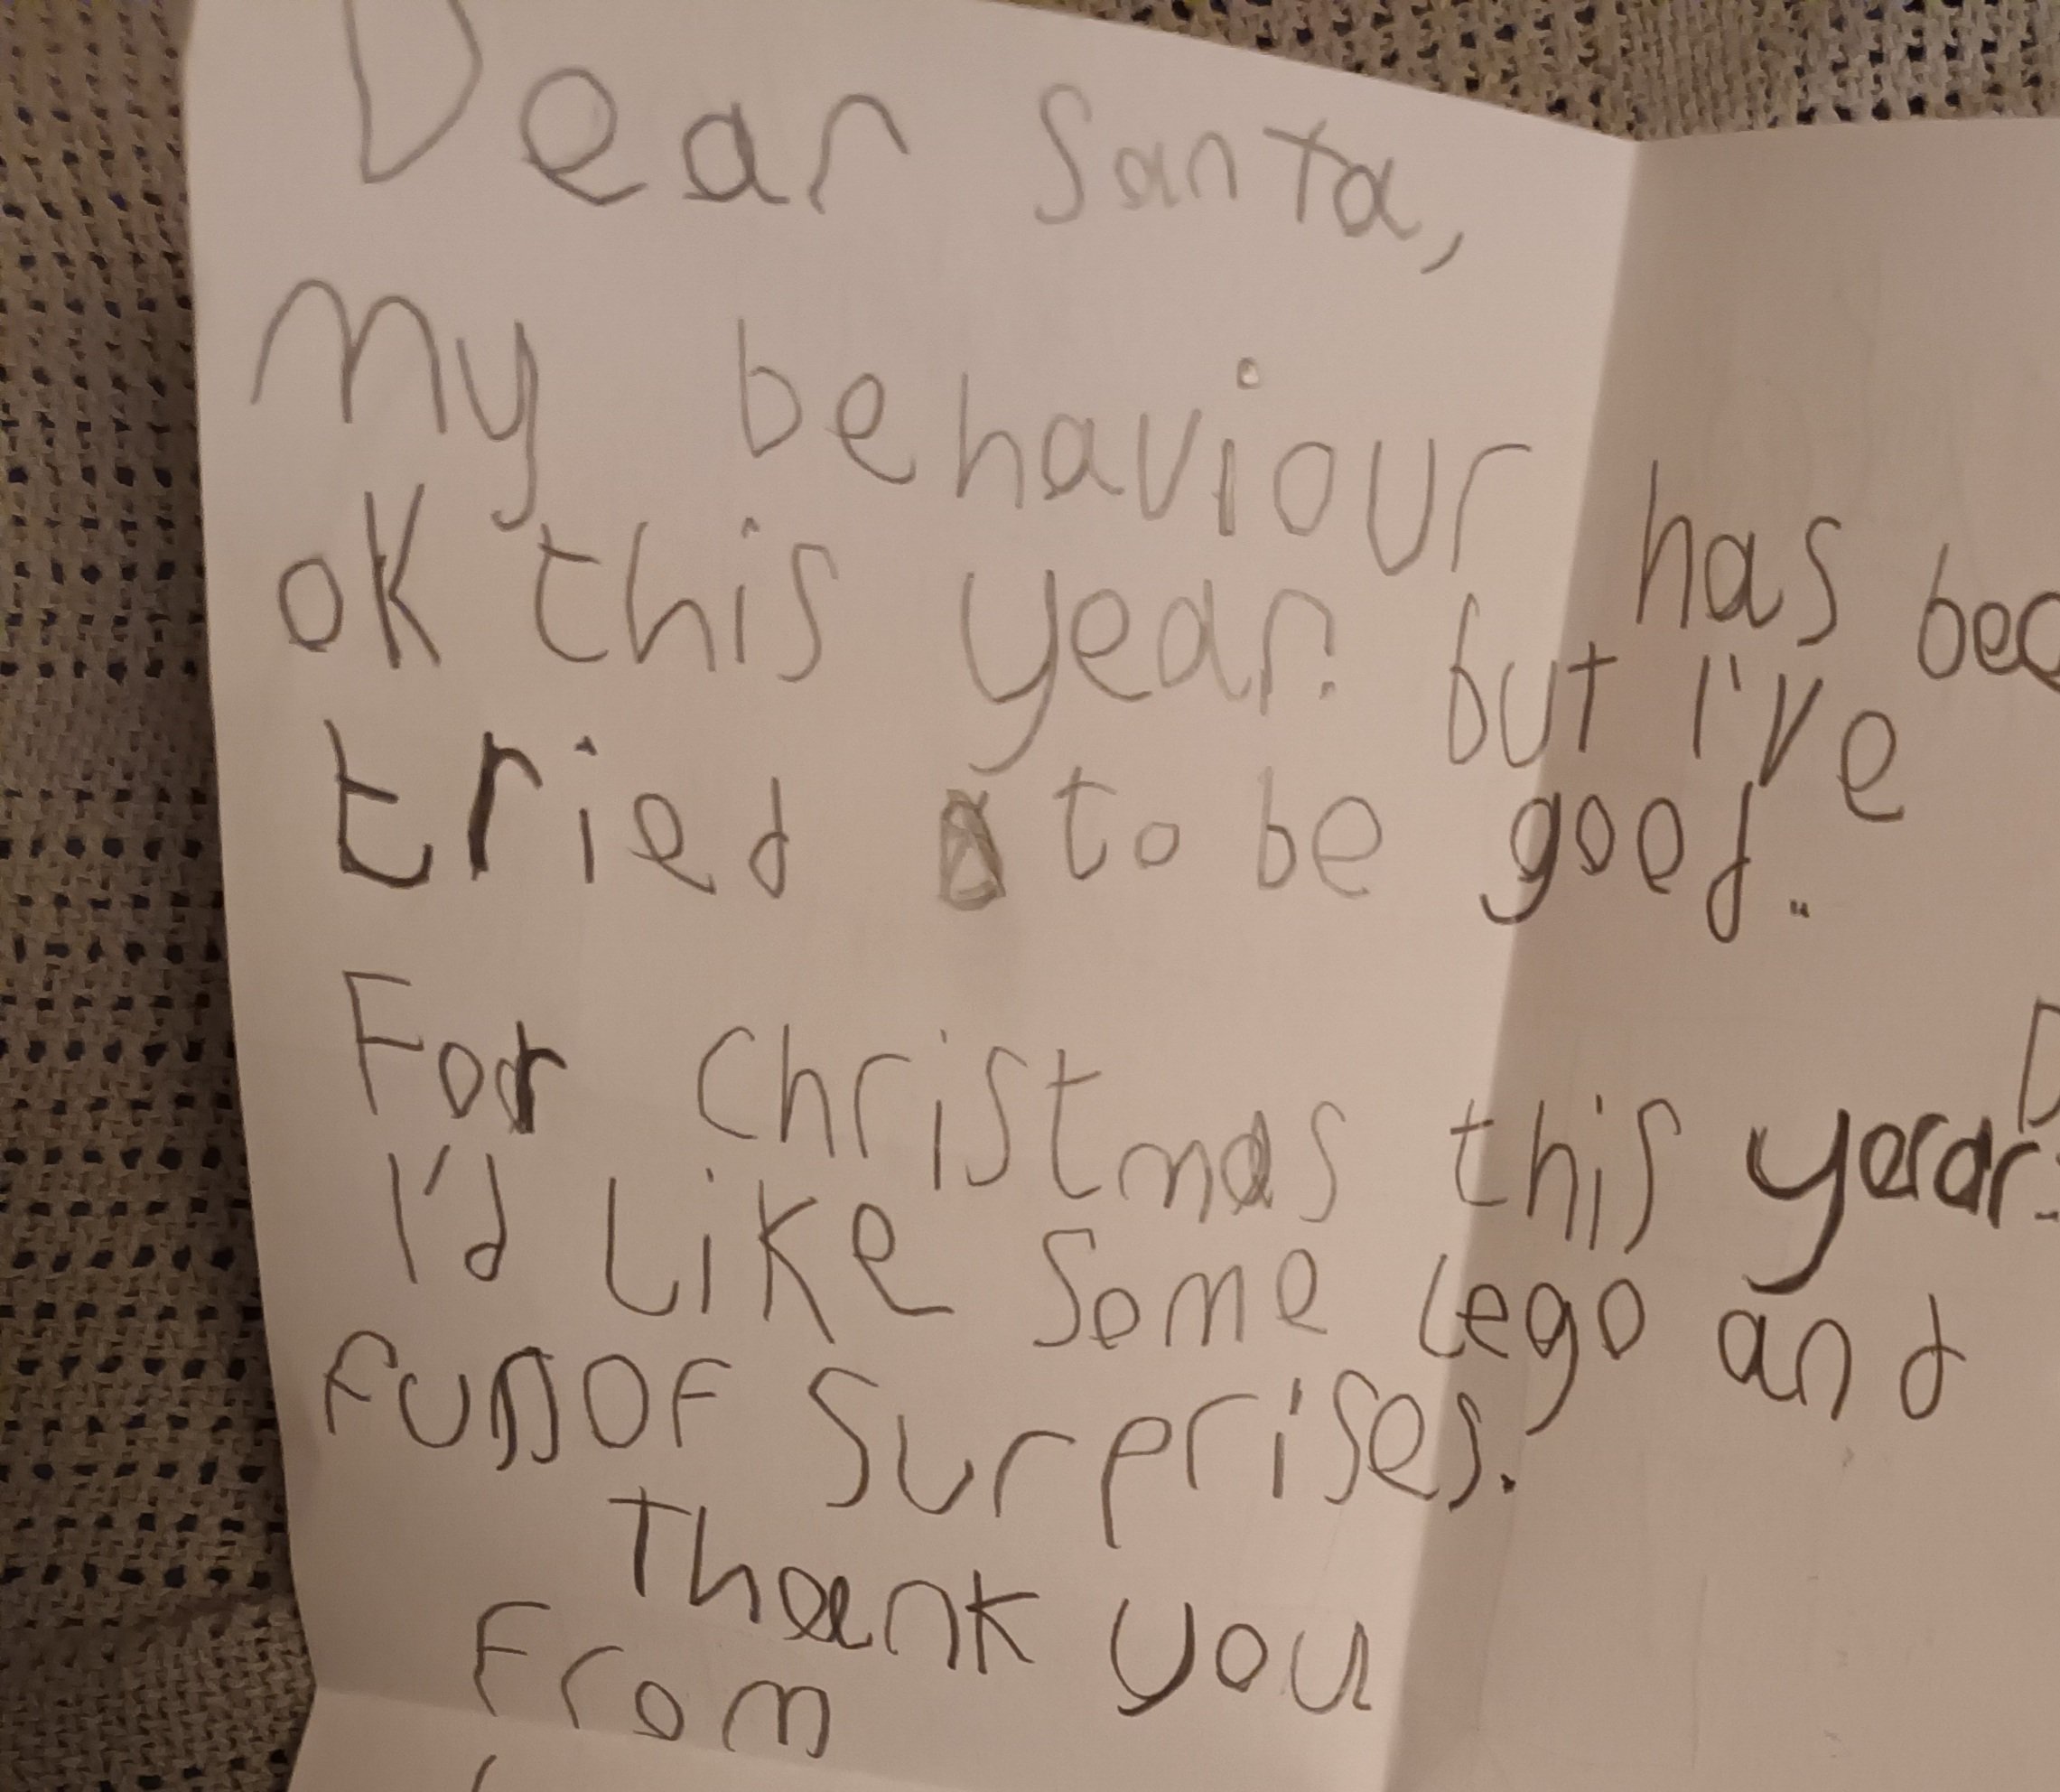 Dear Santa,
My behaviour has bee
ok this year. but I've
tried to be good..
For christmas this year.
I'd Like some lego and
Surprises.
Thank you
From